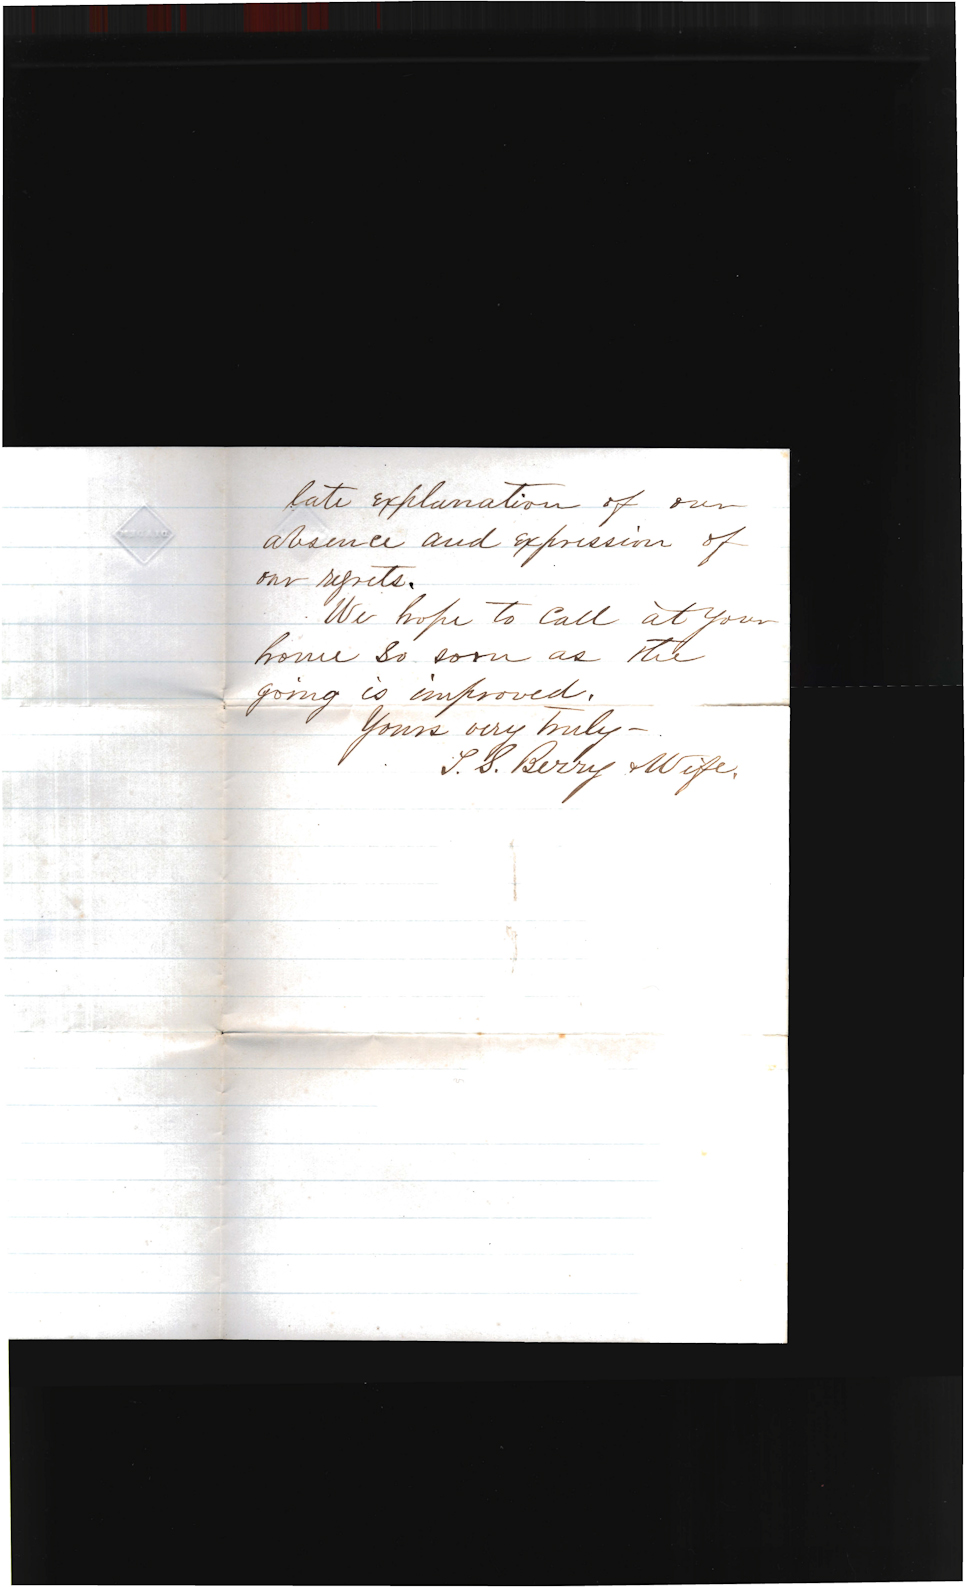 late explanation of our
absence and expression of
our regrets.
We hope to call at your
home so soon as the
going is improved.
Yours very truly –
S. Berry & Wife.